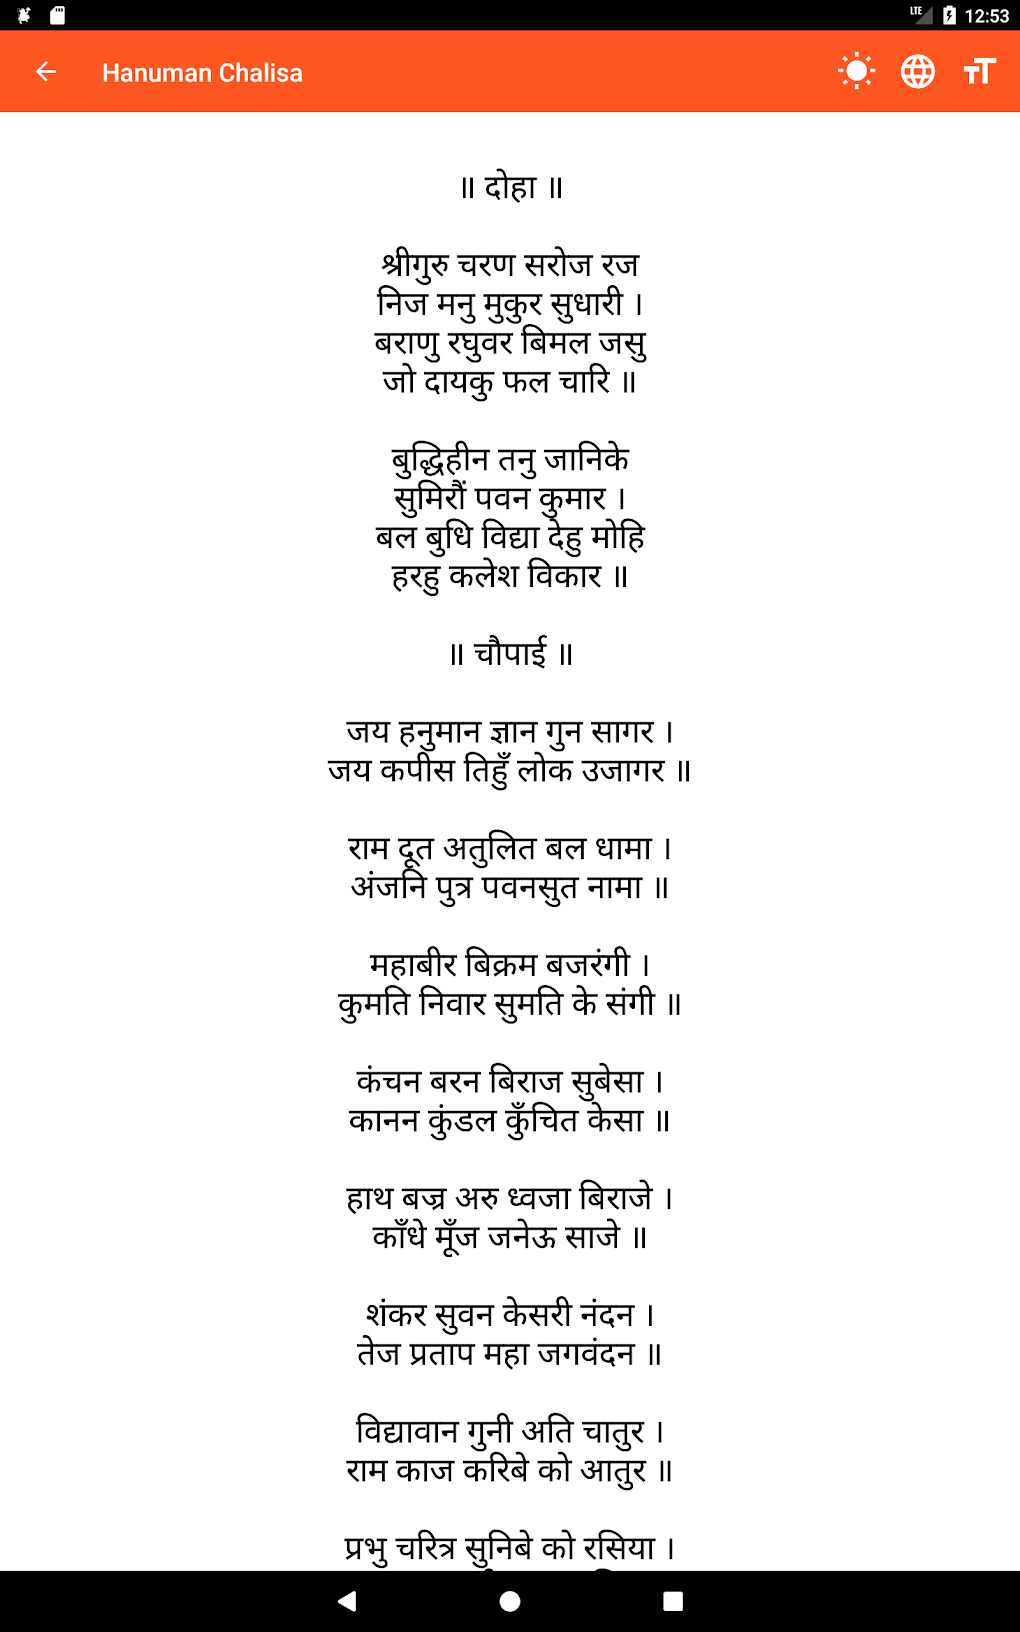 LTE 12:53
Hanuman Chalisa
॥ दोहा ॥
श्रीगुरु चरण सरोज रज
निज मनु मुकुर सुधारी ।
बराणु रघुवर बिमल जसु
जो दायकु फल चारि ॥
बुद्धिहीन तनु जानिके
सुमिरौं पवन कुमार ।
बल बुधि विद्या देहु मोहि
हरहु कलेश विकार ॥
॥ चौपाई ॥
जय हनुमान ज्ञान गुन सागर ।
जय कपीस तिहुँ लोक उजागर ॥
राम दूत अतुलित बल धामा ।
अंजनि पुत्र पवनसुत नामा ॥
महाबीर बिक्रम बजरंगी ।
कुमति निवार सुमति के संगी ॥
कंचन बरन बिराज सुबेसा ।
कानन कुंडल कुँचित केसा ॥
हाथ बज्र अरु ध्वजा बिराजे ।
काँधे मूँज जनेऊ साजे ॥
शंकर सुवन केसरी नंदन ।
तेज प्रताप महा जगवंदन ॥
विद्यावान गुनी अति चातुर ।
राम काज करिबे को आतुर ॥
प्रभु चरित्र सुनिबे को रसिया ।